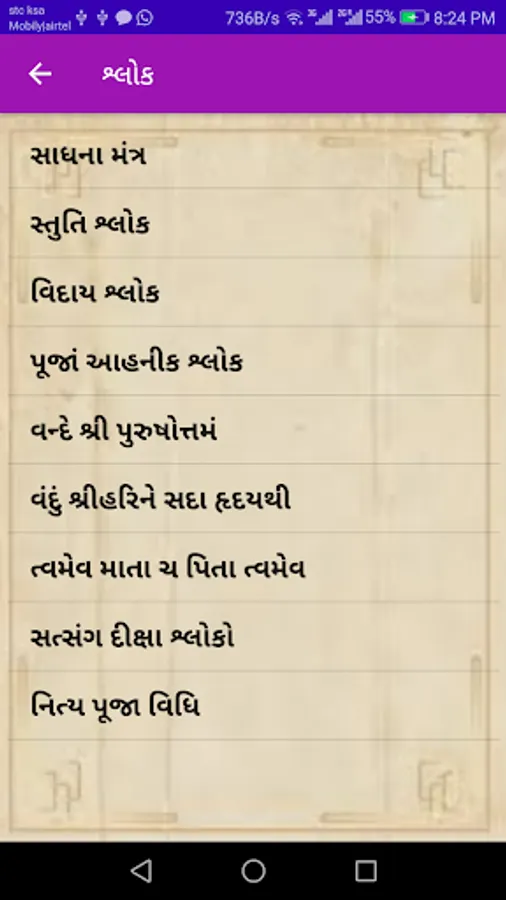 stc ksa
Mobily|airtel
736B/s 3G 2G 55% 8:24 PM
શ્લોક
સાધના મંત્ર
સ્તુતિ શ્લોક
વિદાય શ્લોક
પૂજાં આહનીક શ્લોક
વન્દે શ્રી પુરુષોત્તમં
વંદું શ્રીહરિને સદા હૃદયથી
ત્વમેવ માતા ચ પિતા ત્વમેવ
સત્સંગ દીક્ષા શ્લોકો
નિત્ય પૂજા વિધિ